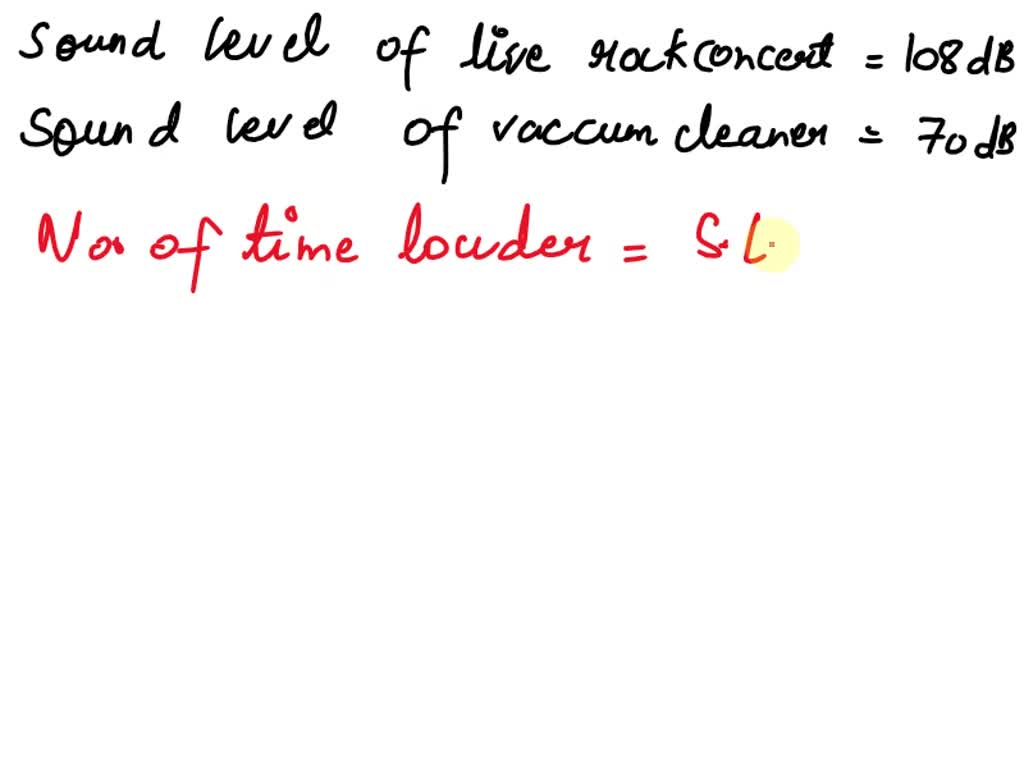 Sound level of live rock concert = 108 dB
Sound level of vaccum cleaner = 70 dB
No of time louder = S.L